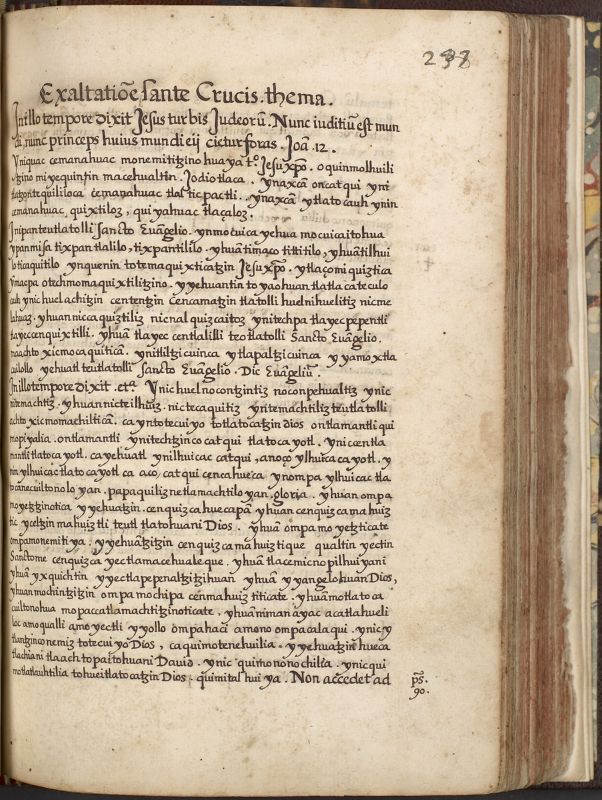 237
Exaltatiõe sante Crucis. thema.
In illo tempore dixit Jesus turbis Judeorũ. Nunc iuditiũ est mun
di, nunc princeps huius mundi eij cietur foras. Joã. 12.
Yniquac cemanahuac monemititzino hua ya tº. Jesu xp̃o. oquinmolhuili
tzino miyequintin macehualtin. Jodiotlaca. ynaxcã oncat qui yni
tlatzontequililoca cemanahuac tlal ticpactli. ynaxcã ytlatocauh ynin
cemanahuac, quixtiloz, quiyahuac tlaçaloz.
Inipan teutlatolli sancto Euãgelio. ynmotuica yehua mocuicaitohua
ypanmisa tixpantlalilo, tixpantililo. yhuã timaco tittitilo, yhuã tilhui
lo ticaquitilo ynquenin totemaquixticatzin Jesu xp̃o. ytlaçomiquiztica
ynacpa otechmomaquixtilitzino. yyehuantin toyaohuan tlatlacateculo
cauh ynic huel achitzin centetzin cencamatzin tlatolli huelnihuelitiz nicme
lahuaz. yhuan niccaquiztiliz nicnalquizcaitoz ynitechpa tlayecpepentli
tlayeccenquixtilli. yhuã tlayec centlalilli teotlatolli sancto Euãgelio.
maachto xicmocaquiticã. ynitiltzicuinca ytlapaltzicuinca yyamoxtla
cuilollo yehuatl teutlatolli sancto Euãgelio. Dic Euãgeliũ.
In illo tempore dixit. etc. Ynic huel nocontzintiz noconpehualtiz ynic
nitemachtiz. yhuan nicteilhuiz. nictecaquitiz ynitemachtiliz teutlatolli
achto xicmomachiltica. ca yntotecuiyo totlatocatzin dios ontlamantli qui
mopiyalia. ontlamantli ynitechtzinco catqui tlatocayotl. yniccentla
mantli tlatocayotl. ca yehuatl ynilhuicac catqui, anoço ylhuicacayotl. y
nin ylhuicac tlatocayotl ca aco, catqui cenca hueca ynompa ylhuicac tla
tocanecuiltonoloyan. papaquiliznetlamachtiloyan. gloria. yhuan ompa
moyetztinotica yyehuatzin. cenquizca huecapã yhuan cenquizcamahuiz
tic yceltzin mahuiztli teutl tlatohuani Dios. yhuã ompamoyetzticate
ompamonemitiya. yyehuãtzitzin cenquizcamahuiztique qualtin yectin
Sanctome cenquizca yectlamacehualeque. yhuã tlacemicnopilhuiyani
yhuã yxquichtin yyectlapepenaltzitzihuan yhuã yyangelohuan Dios,
yhuan mochintzitzin ompa mochipa cenmahuiztiticate. yhuã motlatoca
cuiltonohua mopaccatlamachtitzinoticate. yhuã niman ayac acatlahueli
loc amo qualli amo yectli yyollo ompahaci amono ompacalaqui. ynicy
tlantzinco nemiz totecuiyo Dios, ca quimotenehuilia. yyehuatzin hueca
tlachiani tlaachtopaitohuani Dauid. ynic quimononochilia. ynicqui
motlatlauhtilia tohueitlatocatzin Dios. quimitalhuiya. Non accedet ad
ps̃.
90.